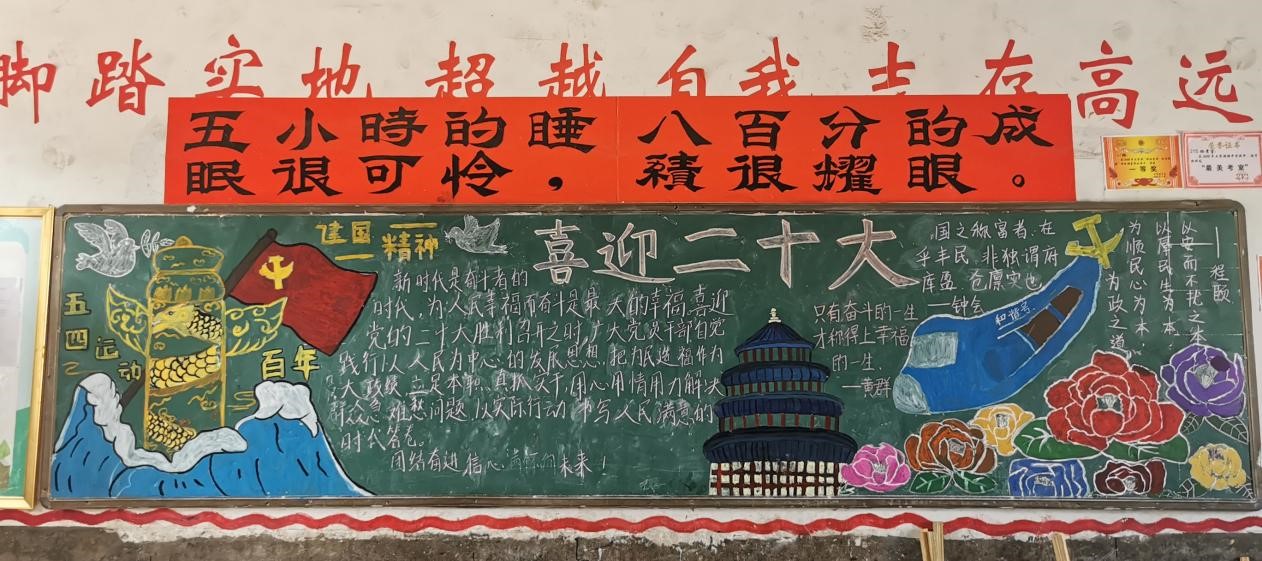 脚踏实地 超越自我 志存高远
五小時的睡
眠很可怜，
八百分的成
績很耀眼。
一等奖
荣誉证书
"最美考室"
建国
精神
喜迎二十大
五四运动
百年
新时代是奋斗者的
时代，为人民幸福而奋斗是最大的幸福，喜迎
党的二十大胜利召开之时，广大党员干部自觉
践行以人民为中心的发展思想，把为民造福作为
最大政绩，立足本职，真抓实干，用心用情用力解决
群众急难愁问题，以实际行动书写人民满意的
时代答卷。
团结奋进 信心满怀向未来！
只有奋斗的一生
才称得上幸福
的一生。
—黄群
国之称富者，在
乎丰民，非独谓府
库盈，仓廪实也
—钟会
和谐号
为政之道，
为顺民心为本，
以厚民生为本，
以安而不扰之本
—程颐